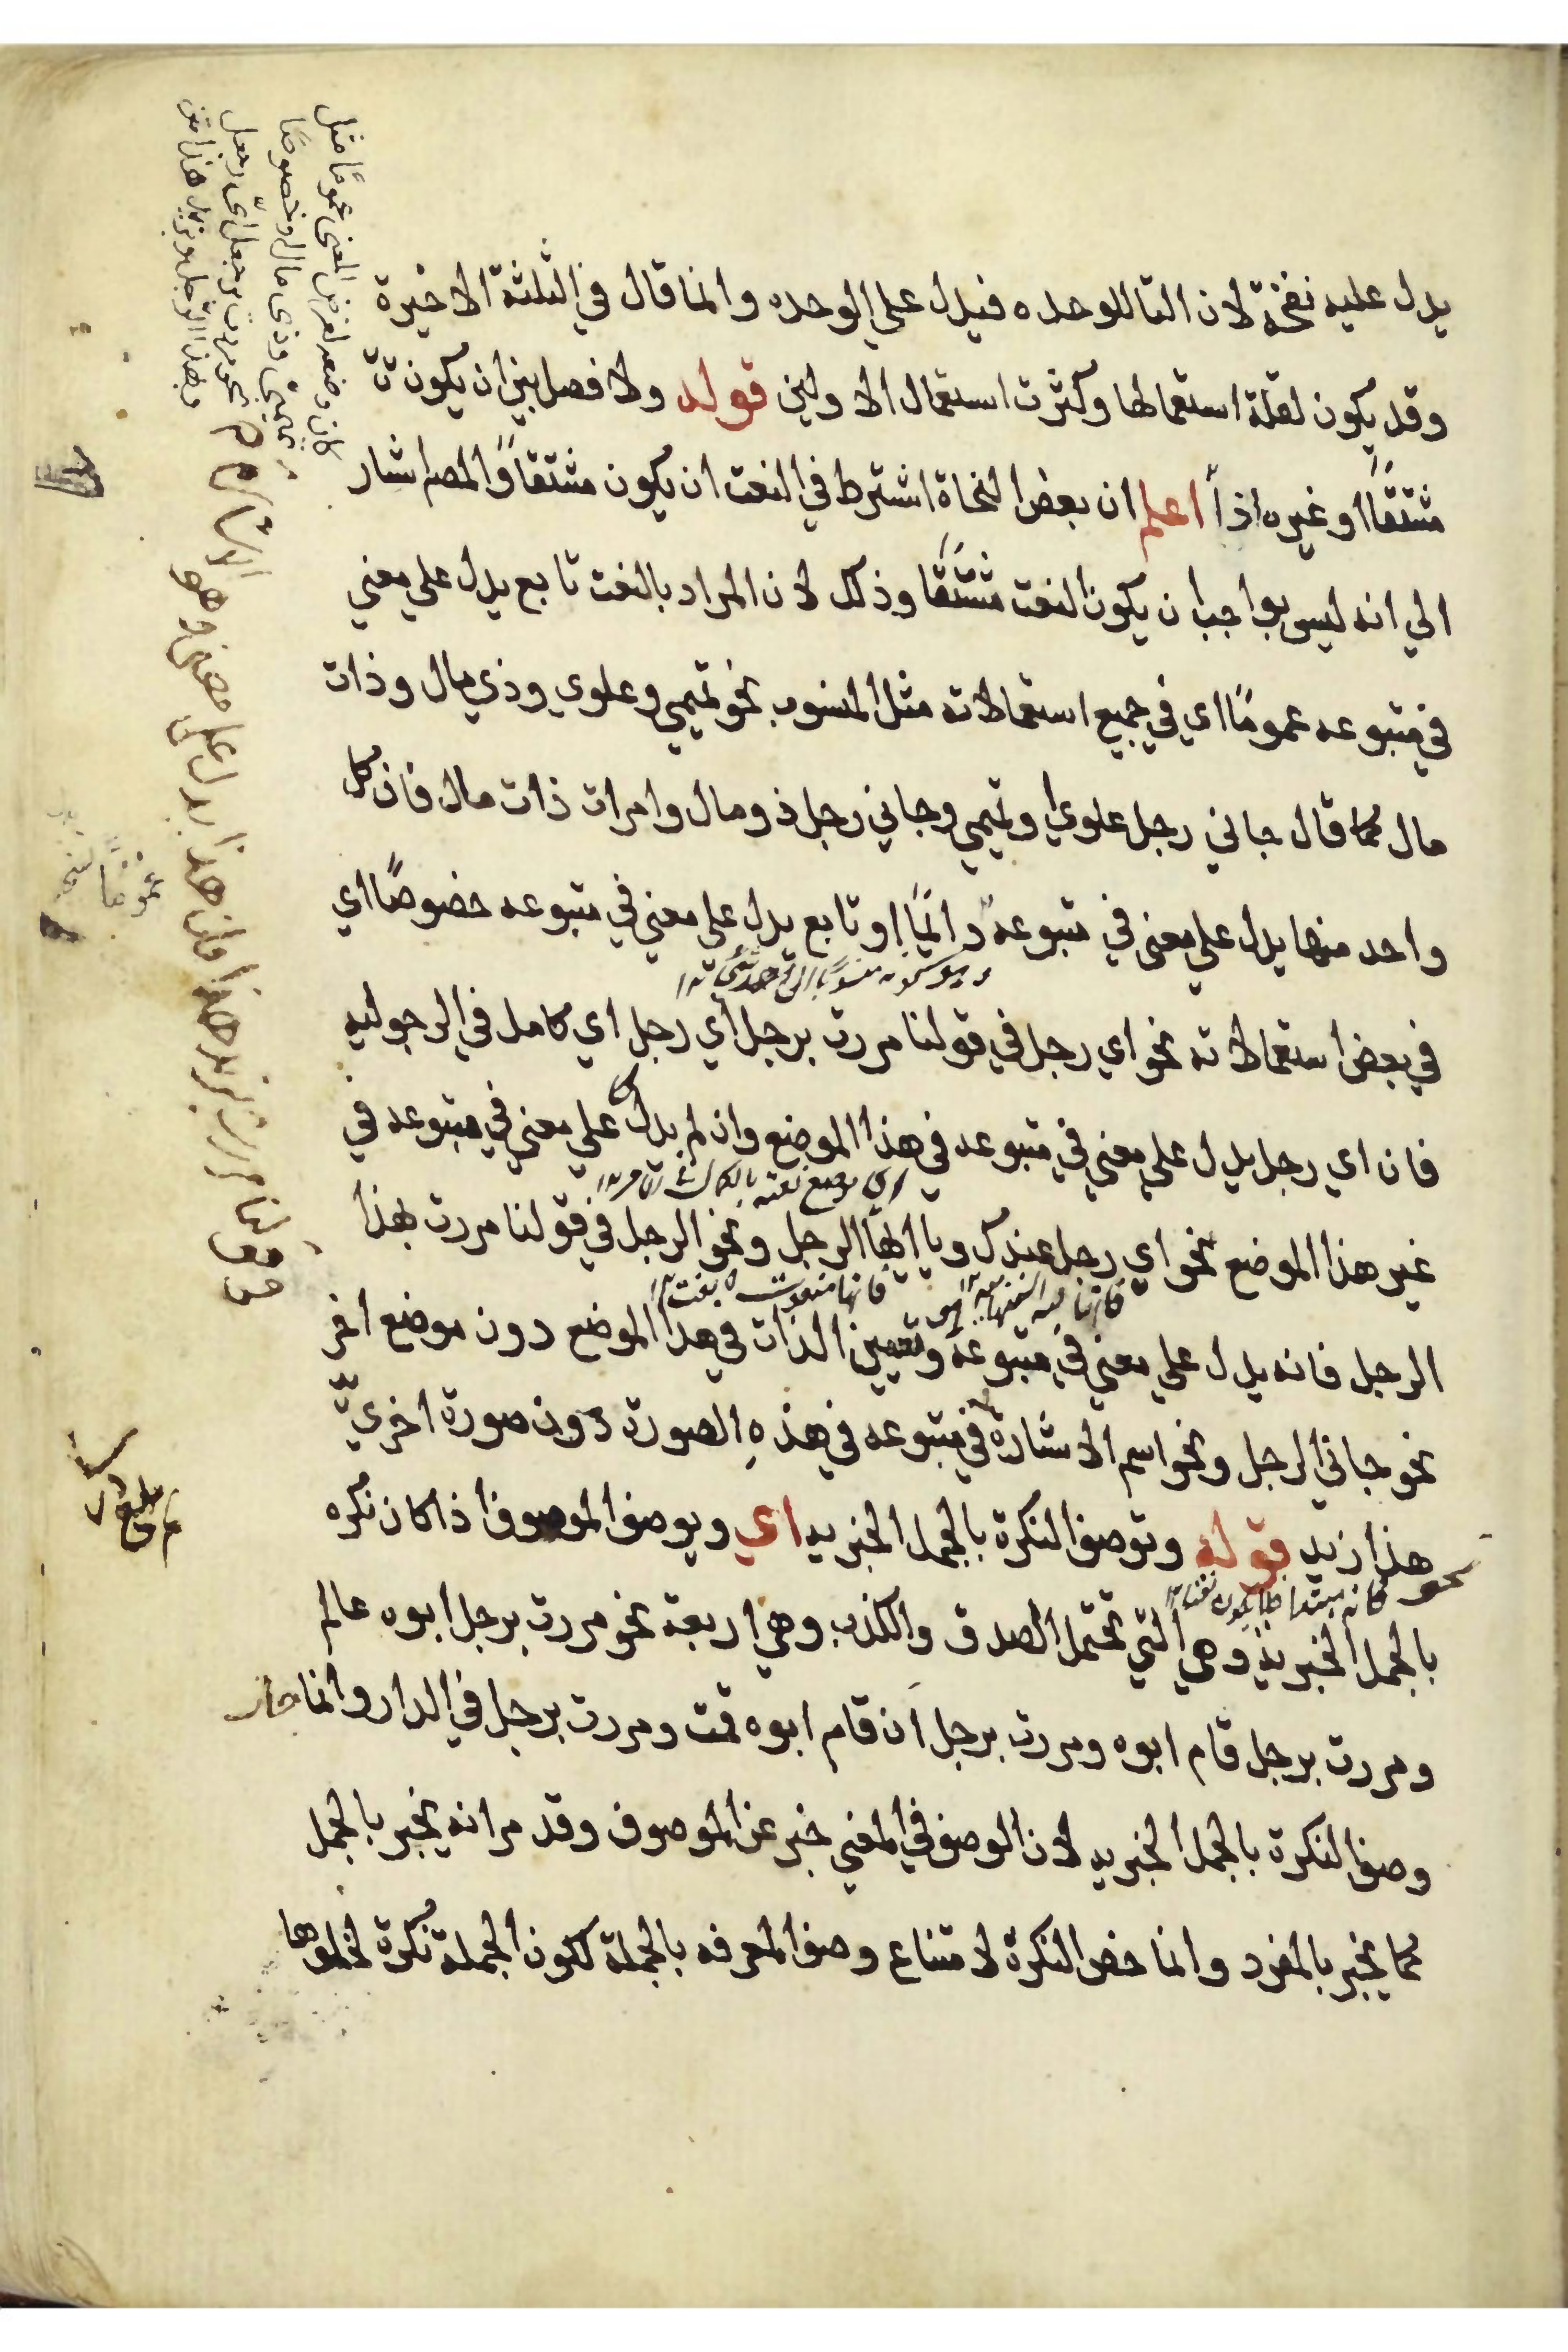 يدل عليه نفخة لان التا للوحده فيدل علي الوحده وانما قال في الثلثة الاخيرة
وقد يكون لقلة استعمالها وكثرت استعمال الاولين قوله ولا فصل بين ان يكون
مشتقًا او غيره اذاً اعلم ان بعض النحاة اشترط في النعت ان يكون مشتقاً والمصر اشار
الي انه ليس بواجب ان يكون النعت مشتقًا وذلك لان المراد بالنعت تابع يدل علي معني
في متبوعه عمومًا اي في جميع استعمالاته مثل المنسوب نحو تميمي وعلوي وذي مال وذات
مال كما قال جاني رجل علوي او تميمي وجاني رجل ذو مال وامرات ذات مال فان كل
واحد منها يدل علي معني في متبوعه دائمًا او تابع يدل علي معني في متبوعه خصوصًا اي
في بعض استعمالاته نحو اي رجل في قولنا مررت برجل اي رجل اي كامل في الرجوليه
فان اي رجل يدل علي معني في متبوعه في هذا الموضع وان لم يدل علي معني في متبوعه في
غير هذا الموضع نحو اي رجل عندك ويا ايها الرجل ونحو الرجل في قولنا مررت بهذا
الرجل فانه يدل علي معني في متبوعه وتعيين الذات في هذا الموضع دون موضع اخر
نحو جاني الرجل ونحو اسم الاشارة في متبوعه في هذهِ الصورة دون صورة اخري
نحو هذا زيد قوله وتوصف النكرة بالجمل الخبريه اي ويوصف الموصوف اذا كان نكره
فانه مبتدا فلا يكون نعتا
بالجمل الخبرية وهي التي تحتمل الصدق والكذب وهي اربعة نحو مررت برجل ابوه عالم
ومررت برجل قام ابوه ومررت برجل ان قام ابوه قمت ومررت برجل في الدار وانما جاز
وصف النكرة بالجمل الخبريه لان الوصف في المعني خبر عن الموصوف وقد مر انه يخبر بالجمل
كما يخبر بالمفرد وانما خص النكرة لامتناع وصف المعرفه بالجملة لكون الجملة نكرة لخلوها
كان وضعه لغرض المعنى عمومًا مثل
تميمىّ وذى مال او خصوصًا
نحو مررت برجل اىّ رجل
وبهذا الرجل وبزيد هذا متن
قولنا مررت بزيد هذا فان هذا يدل على معنى وهو
الاشارة